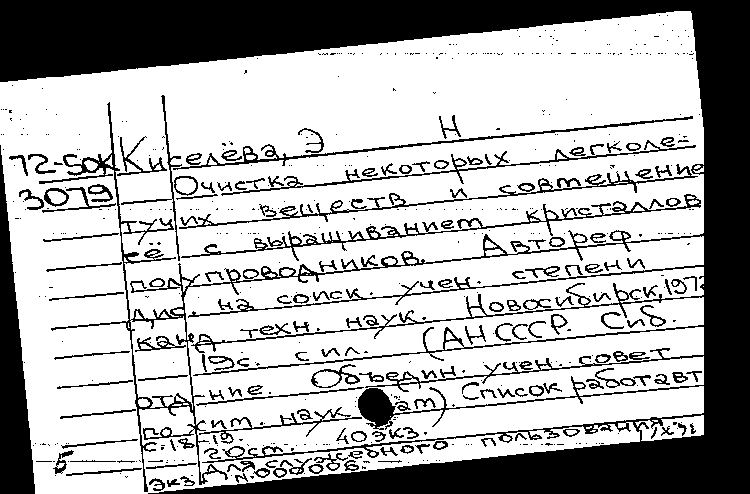 72-50К Киселёва, Э Н.
3079 Очистка некоторых легколе=
тучих веществ и совмещение
её с выращиванием кристаллов
полупроводников. Автореф.
дис. на соиск. учен. степени
канд. техн. наук. Новосибирск, 1972
19с. с ил. (АН СССР. Сиб.
отд-ние. Объедин. учен. совет
по хим. наукам). Список работ авт
с. 18-19. 40 экз.
Для служебного пользования.
Б экз. N:000006.